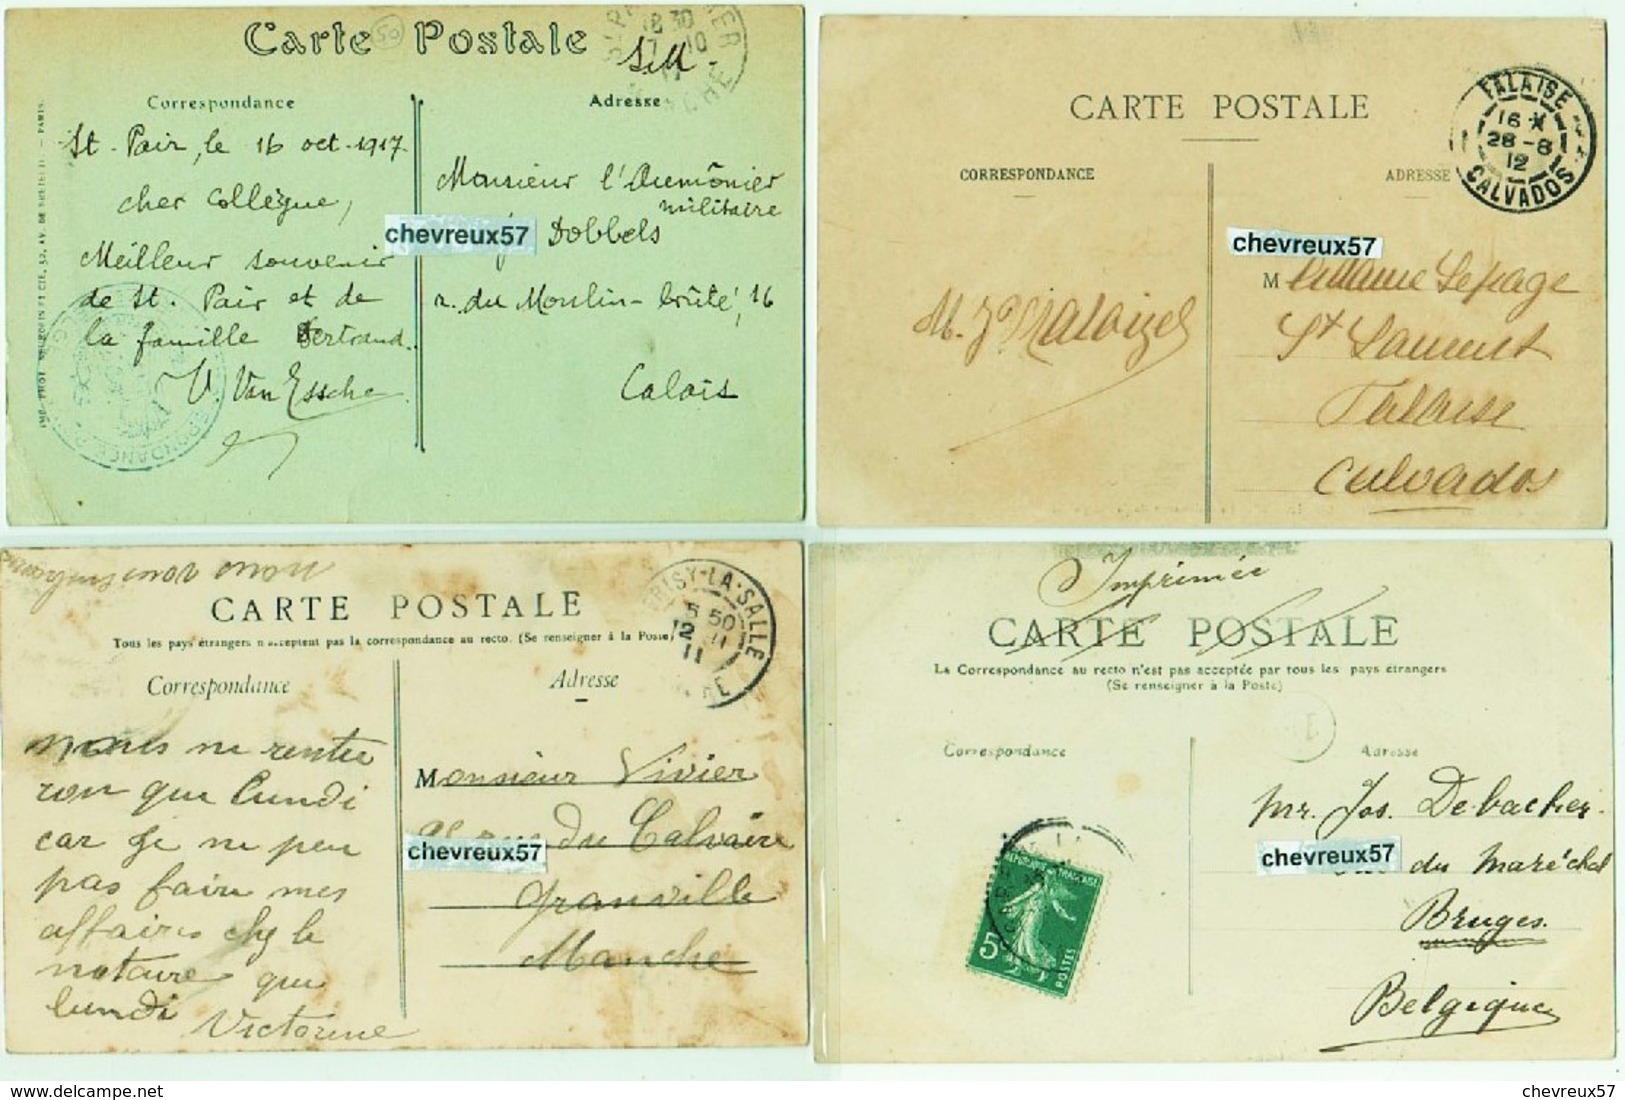 Carte Postale
50
18 30
7 10
17
S.M.
Correspondance
Adresse
St. Pair, le 16 oct. 1917.
cher collègue,
Meilleur souvenir
de St. Pair et de
la famille Bertrand.
V. Van Essche
Monsieur l'Aumônier
militaire
Dobbels
r. du Moulin-brûlé, 16
Calais
chevreux57
CARTE POSTALE
CORRESPONDANCE
ADRESSE
FALAISE
16 *
28 -8
12
CALVADOS
chevreux57
Madame Lepage
St Laurent
Falaise
Calvados
nous vous embrassons
CARTE POSTALE
Tous les pays étrangers n'acceptent pas la correspondance au recto. (Se renseigner à la Poste)
Correspondance
Adresse
RISY-LA-SALLE
5 50
12 11
11
nous ne rentre
ron que lundi
car je ne peu
pas faire mes
affaires chez le
notaire que
lundi Victorine
Monsieur Vivier
rue du Calvaire
Granville
Manche
chevreux57
Imprimée
CARTE POSTALE
La Correspondance au recto n'est pas acceptée par tous les pays étrangers
(Se renseigner à la Poste)
Correspondance
Adresse
REPUBLIQUE FRANÇAISE
5
POSTES
Mr. Jos. Debacker.
chevreux57
du Maréchal
Bruges.
Belgique
chevreux57